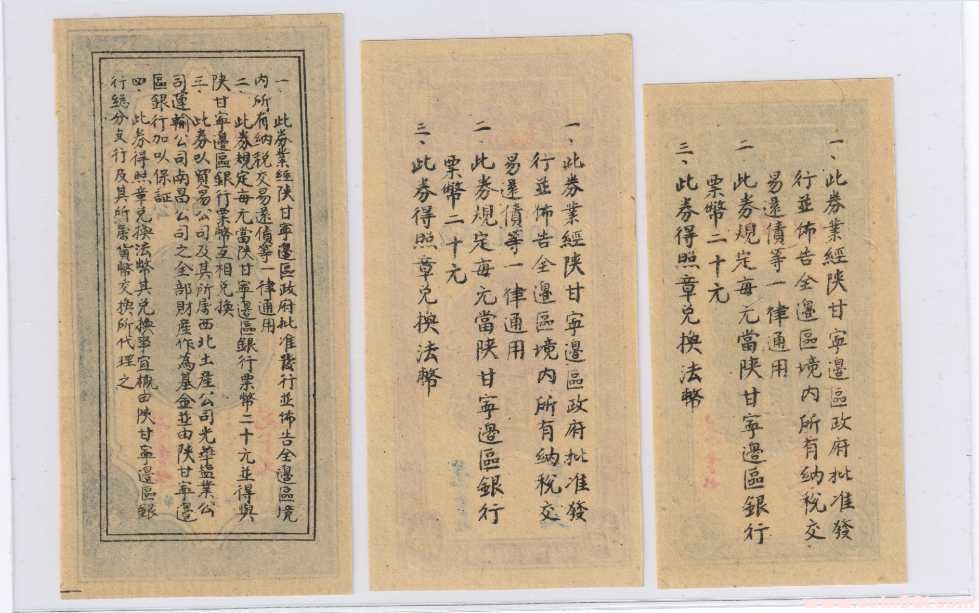 一、此券業經陝甘寧邊區政府批准發行並佈告全邊區境
內所有納稅交易還債等一律通用
二、此券規定每元當陝甘寧邊區銀行票幣二十元並得與
陝甘寧邊區銀行票幣互相兌換
三、此券以貿易公司及其所屬西北土產公司光華鹽業公
司運輸公司南昌公司之全部財產作為基金並由陝甘寧邊
區銀行加以保証
四、此券得照章兌換法幣其兌換事宜概由陝甘寧邊區銀
行總分支行及其所屬貨幣交換所代理之
一、此券業經陝甘寧邊區政府批准發
行並佈告全邊區境內所有納稅交
易還債等一律通用
二、此券規定每元當陝甘寧邊區銀行
票幣二十元
三、此券得照章兌換法幣
一、此券業經陝甘寧邊區政府批准發
行並佈告全邊區境內所有納稅交
易還債等一律通用
二 此券規定每元當陝甘寧邊區銀行
票幣二十元
三、此券得照章兌換法幣